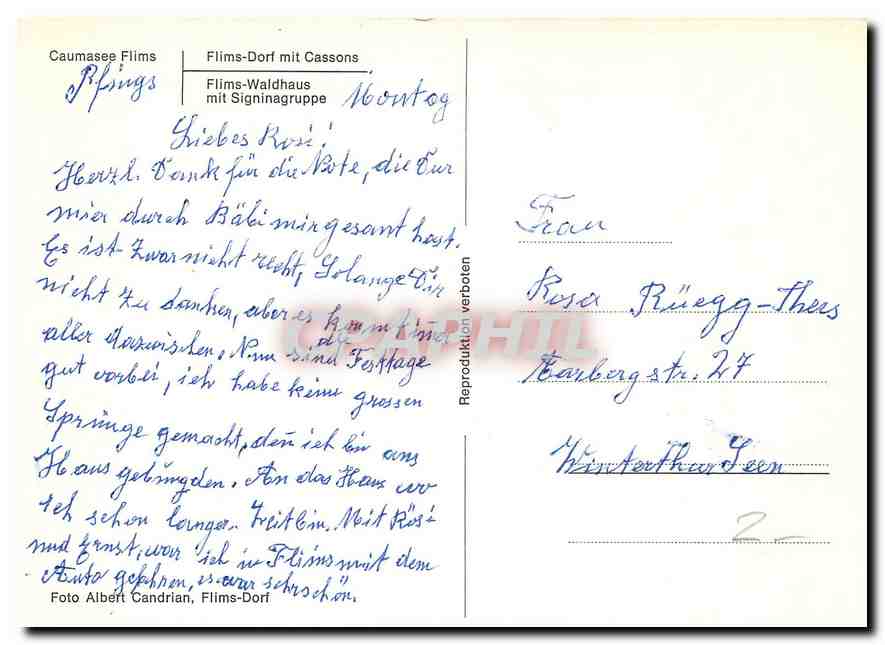 Caumasee Flims
Flims-Dorf mit Cassons
Flims-Waldhaus
mit Signinagruppe
Pfings Montag
Liebes Rosi!
Herzl. Dank für die Note, die Du
mier durch Bäbi mir gesant hast.
Es ist zwar nicht recht, solange Dir
nicht zu danken, aber es kommt und
aller dazwischen. Nun sind die Festtage
gut vorbei, ich habe keine grossen
Sprünge gemacht, den ich bin ans
Haus gebungden. An das Haus wo
ich schon langer Zeit bin. Mit Rösi
und Ernst, war ich in Flims mit dem
Auto gefahren, es war sehr schön.
Foto Albert Candrian, Flims-Dorf
Reproduktion verboten
CPAPHIL
Frau
Rosa Rüegg-Thers
Aarbergstr. 27
Winterthur Seen
2.-